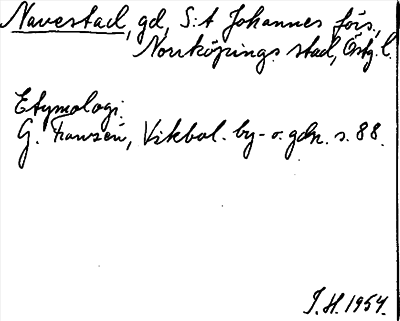 Navestad, gd, S:t Johannes förs.,
Norrköpings stad, Östg. l.
Etymologi:
G. Franzén, Vikbol. by- o. gdn. s. 88.
I.H. 1954.